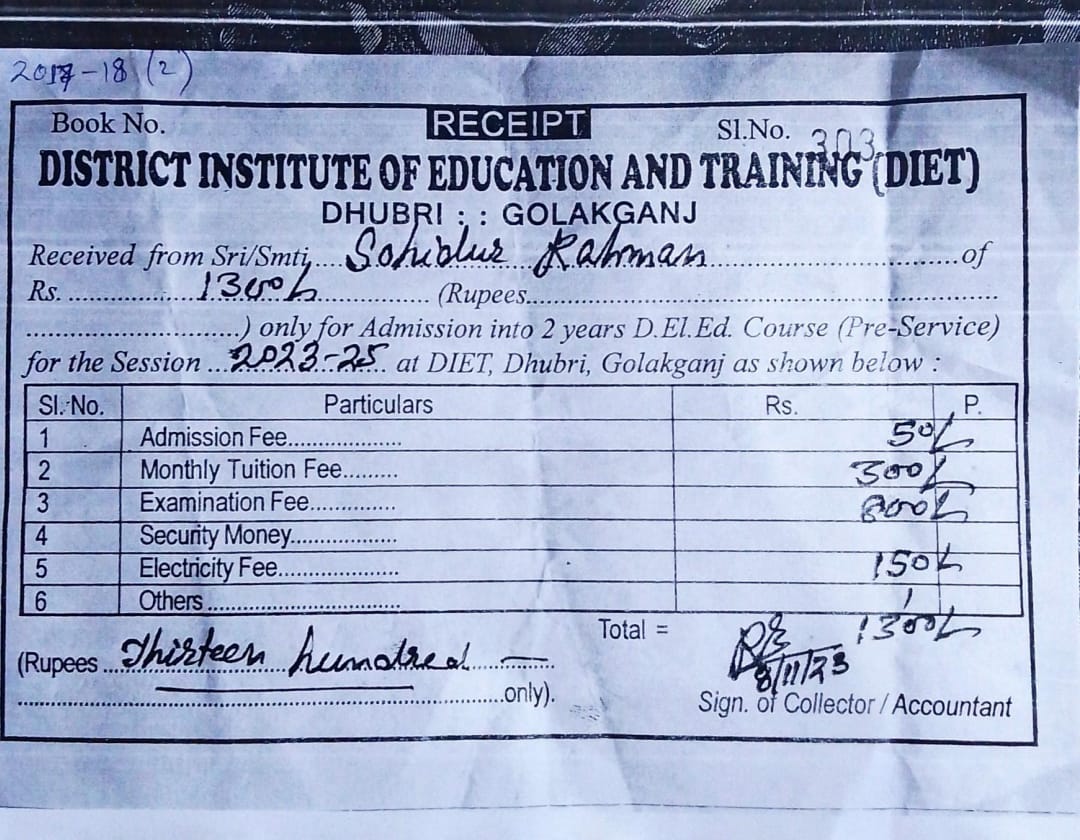 2017-18 (2)
Book No. RECEIPT Sl.No. 303
DISTRICT INSTITUTE OF EDUCATION AND TRAINING (DIET)
DHUBRI : : GOLAKGANJ
Received from Sri/Smti.... Sohidur Rahman ..........................of
Rs. .................. 1300/- ................ (Rupees..........................................................
..............................) only for Admission into 2 years D.El.Ed. Course (Pre-Service)
for the Session ...2023-25.. at DIET, Dhubri, Golakganj as shown below :
Sl. No. Particulars Rs. P.
1 Admission Fee.................. 50/-
2 Monthly Tuition Fee......... 300/-
3 Examination Fee.............. 800/-
4 Security Money.................
5 Electricity Fee.................... 150/-
6 Others ................................ /
Total = 1300/-
(Rupees ...Thirteen hundred.... —
8/11/23
..............................................................only).
Sign. of Collector / Accountant